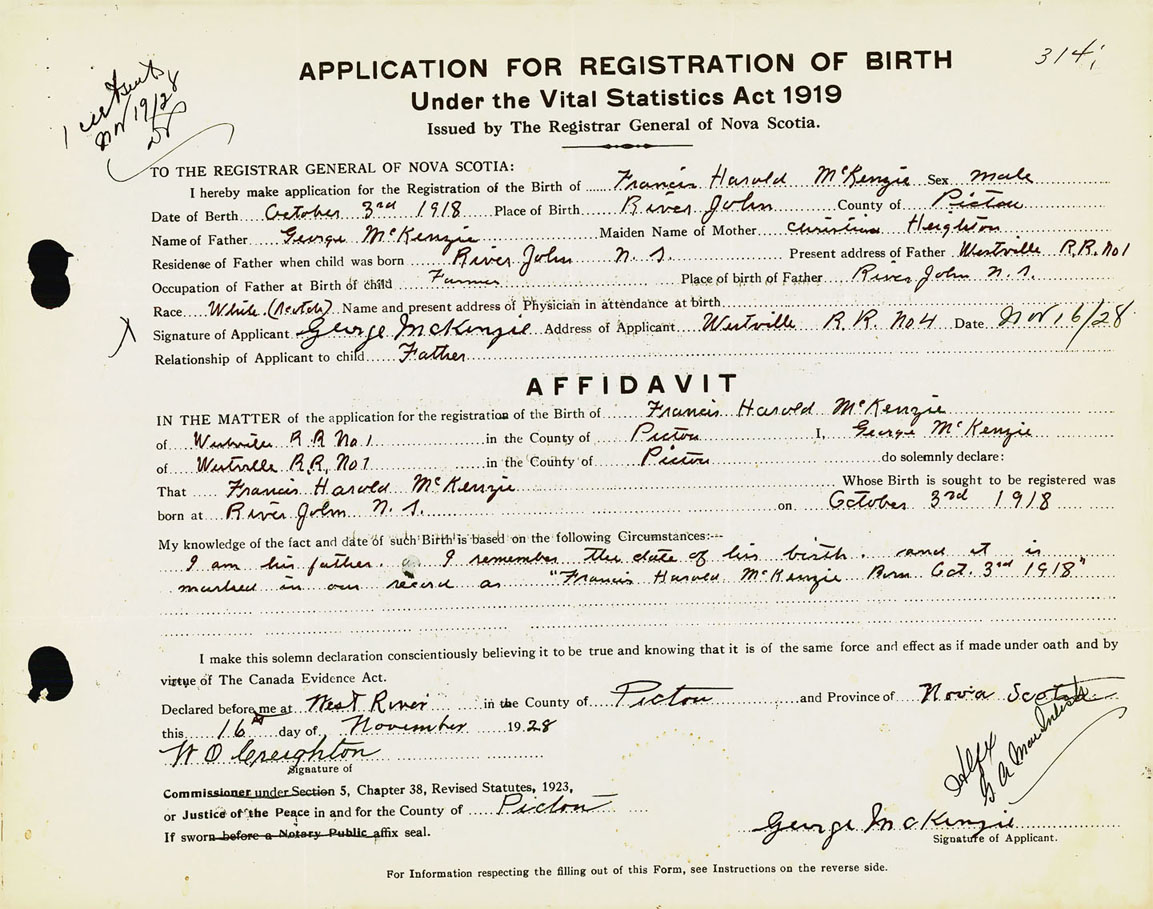 314
Nov 19/28
APPLICATION FOR REGISTRATION OF BIRTH
Under the Vital Statistics Act 1919
Issued by The Registrar General of Nova Scotia.
TO THE REGISTRAR GENERAL OF NOVA SCOTIA:
I hereby make application for the Registration of the Birth of Francis Harold McKenzie Sex male
Date of Berth October 3rd 1918 Place of Birth River John County of Pictou
Name of Father George McKenzie Maiden Name of Mother Christina Heighton
Residence of Father when child was born River John N. S. Present address of Father Westville R.R. No 1
Occupation of Father at Birth of child Farmer Place of birth of Father River John N. S.
Race White (Scotch) Name and present address of Physician in attendance at birth
X Signature of Applicant George McKenzie Address of Applicant Westville R. R. No 4 Date Nov 16/28
Relationship of Applicant to child Father
AFFIDAVIT
IN THE MATTER of the application for the registration of the Birth of Francis Harold McKenzie
of Westville R.R No. 1 in the County of Pictou I, George McKenzie
of Westville R.R. No 1 in the County of Pictou do solemnly declare:
That Francis Harold McKenzie Whose Birth is sought to be registered was
born at River John N. S. on October 3rd 1918
My knowledge of the fact and date of such Birth is based on the following Circumstances:---
I am his father. I remember the date of his birth. and it is
marked in our record as "Francis Harold McKenzie Born Oct. 3rd 1918"
I make this solemn declaration conscientiously believing it to be true and knowing that it is of the same force and effect as if made under oath and by
virtue of The Canada Evidence Act.
Declared before me at West River in the County of Pictou and Province of Nova Scotia
this 16th day of November 1928
W O Creighton
Signature of
Commissioner under Section 5, Chapter 38, Revised Statutes, 1923,
or Justice of the Peace in and for the County of Pictou
If sworn before a Notary Public affix seal.
George McKenzie
Signature of Applicant.
For Information respecting the filling out of this Form, see Instructions on the reverse side.